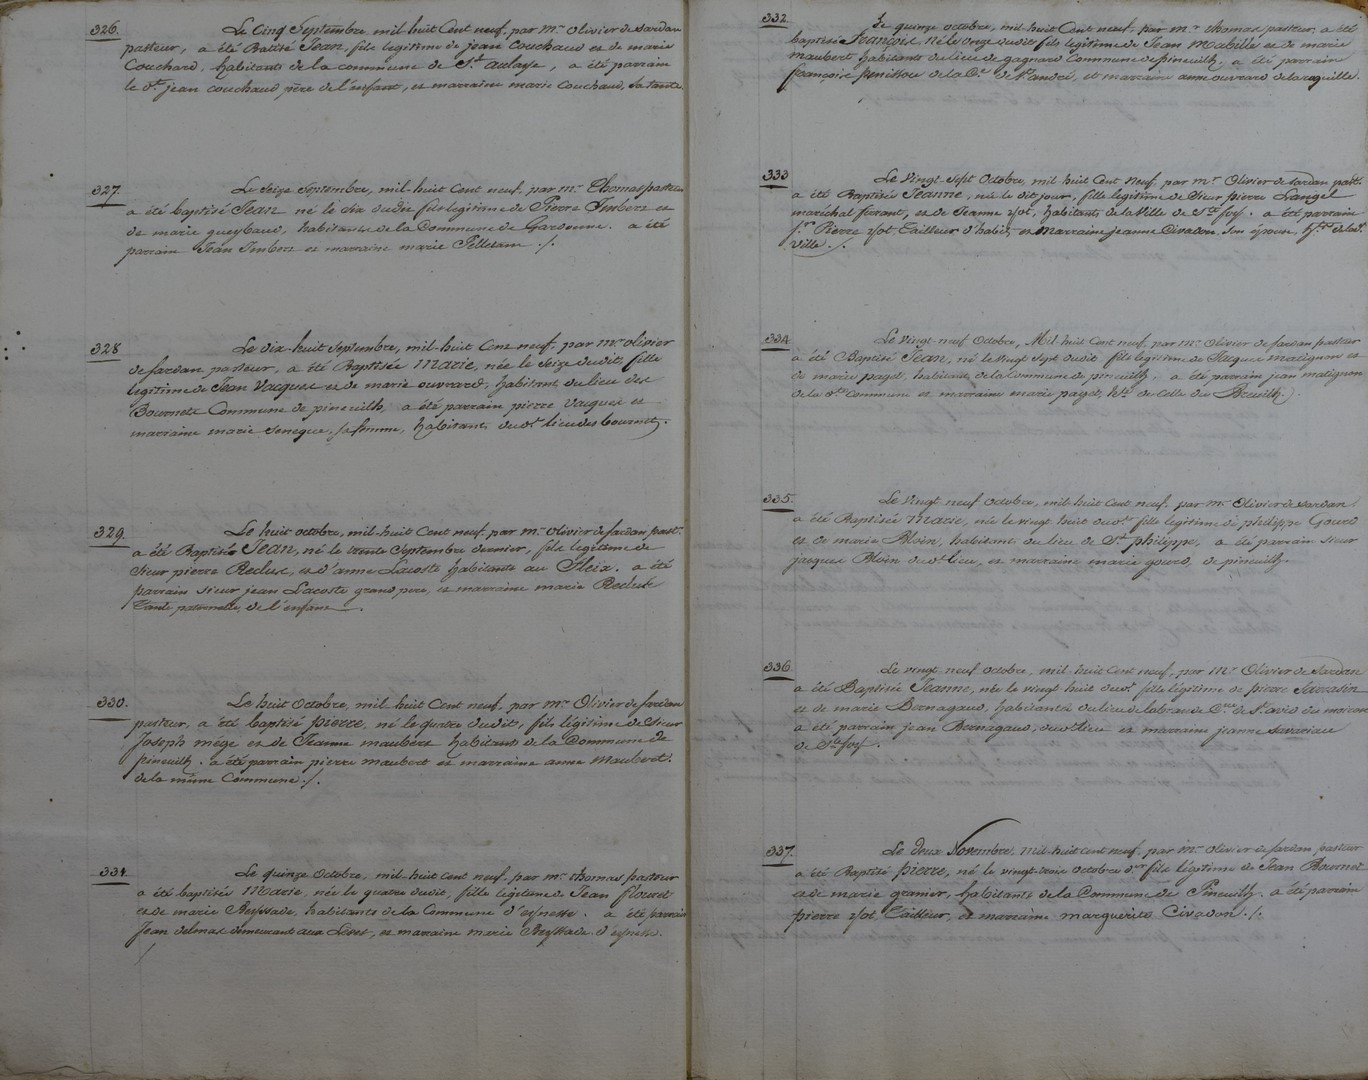 326.
Le Cinq Septembre, mil huit Cent neuf. par mr. olivier de sardan
pasteur, a été Batisé Jean, fils legitime de jean couchaud et de marie
Couchard, habitants de la commune de St. aulaye, a été parrain
le St. jean couchaud père de l'enfant, et marraine marie couchaud, sa tante.
327.
Le Seize Septembre, mil-huit Cent neuf. par mr. Thomas pasteur
a été baptisé Jean né le dix dudit fils legitime de Pierre Imbert et
de marie queybaud, habitants de la Commune de Gardonne. a été
parrain Jean Imbert et marraine marie Pelletan ./.
328
Le dix-huit Septembre, mil-huit Cent neuf. par mr. olivier
de sardan pasteur, a été Baptisée Marie, née le Seize dudit, fille
legitime de Jean Vacques et de marie ouvrard, habitant du lieu des
Bournets Commune de pineuilh, a été parrain pierre Vacques et
marraine marie Seneque, sa femme, habitants dudt. lieu des bournets.
329.
Le huit octobre, mil-huit Cent neuf. par mr. olivier de sardan past.
a été Baptisé Jean, né le trente Septembre dernier, fils legitime de
Sieur pierre Reclus, et d'anne Lacoste habitants au Fleix. a été
parrain Sieur jean Lacoste grand pere, et marraine marie Reclus
Tante paternelle, de l'enfant.
330.
Le huit Octobre, mil huit Cent neuf, par mr. Olivier de sardan
pasteur, a été baptisé pierre, né le quatre dudit, fils légitime de Sieur
Joseph mége et de Jeanne maubert habitants de la Commune de
pineuilh. a été parrain pierre maubert et marraine anne Maubert.
de la même Commune ./.
331.
Le quinze Octobre, mil-huit Cent neuf. par mr. thomas pasteur
a été baptisée Marie, née le quatre dudit, fille légitime de Jean flouret
et de marie Beyssade, habitants de la Commune d'eynesse. a été parrain
Jean delmas demeurant aux Leves, et marraine marie Beyssade d'eynesse.
332.
Le quinze octobre, mil huit Cent neuf, par mr. thomas pasteur, a été
baptisé François né le onze dudit fils légitime de Jean Mabille et de marie
maubert habitants du lieu de gagnard Commune de pineuilh, a été parrain
françois de la Ce. de St. andré, et marraine anne ouvrard de la roquille.
333
Le Vingt Sept Octobre, mil huit Cent Neuf, par mr. Olivier de sardan past.
a été Baptisée Jeanne, née le dit jour, fille légitime de Sieur pierre Langel
maréchal ferrant, et de Jeanne Jot, habitants de la Ville de Ste. foy. a été parrain
Sr. Pierre Jot Tailleur d'habits, et Marraine jeanne Civadon, son épouse, hts. de lad.
Ville ./.
334
Le Vingt-neuf Octobre, Mil huit Cent neuf, par mr. Olivier de sardan pasteur
a été Baptisé Jean, né le Vingt Sept dudit fils legitime de Jacques matignon et
de marie paget, habitants de la Commune de pineuilh, a été parrain jean matignon
de la dte. Commune et marraine marie paget, hte. de celle du Breuilh.
335.
Le vingt neuf octobre, mil-huit Cent neuf. par mr. Olivier de sardan
a été Baptisée Marie, née le vingt huit dudt. fille legitime de philippe Gourd
et de marie Bloin, habitant du lieu de St. philippe, a été parrain Sieur
jacques Bloin dudt. lieu, et marraine marie gourd, de pineuilh.
336
Le vingt-neuf octobre, mil-huit Cent neuf, par Mr. Olivier de Sardan
a été Baptisée Jeanne, née le vingt huit dudt. fille légitime de pierre Sarrasin
et de marie Bernagaud, habitants du lieu de labrau de Cne. de St. avid du moiron
a été parrain jean Bernagaud, dudt. lieu et marraine jeanne savariau
de Ste. foy.
337.
Le deux Novembre, mil-huit Cent neuf. par mr. Olivier de sardan pasteur
a été Baptisé pierre, né le vingt-trois octobre dr. fils légitime de Jean Bournet
et de marie granier, habitants de la Commune de Pineuilh. a été parrain
pierre Jot Tailleur, et marraine marguerite Civadon ./.